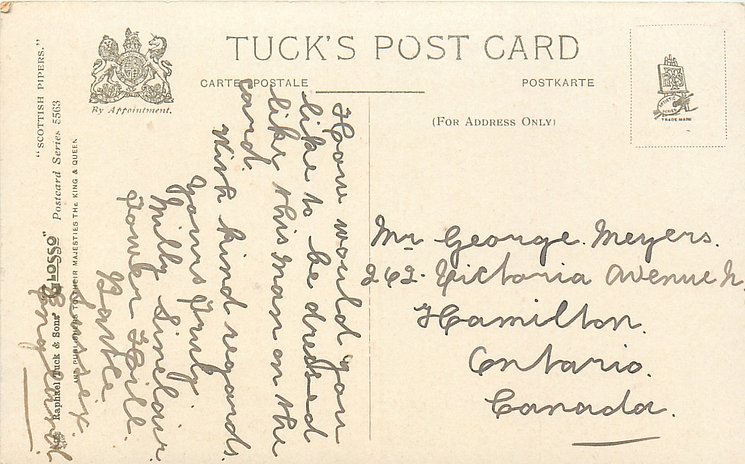 TUCK'S POST CARD
CARTE POSTALE
POSTKARTE
By Appointment.
(FOR ADDRESS ONLY)
TRADE MARK
"SCOTTISH PIPERS."
Raphael Tuck & Sons' "GLOSSO" Postcard Series 5563
ART PUBLISHERS TO THEIR MAJESTIES THE KING & QUEEN
How would you
like to be dressed
like this man on the
card.
With kind regards.
Yours Truly.
Milly Sinclair
Tower Hill.
Battle
Sussex.
England.
Mr George. Meyers.
242. Victoria Avenue N.
Hamilton.
Ontario.
Canada.